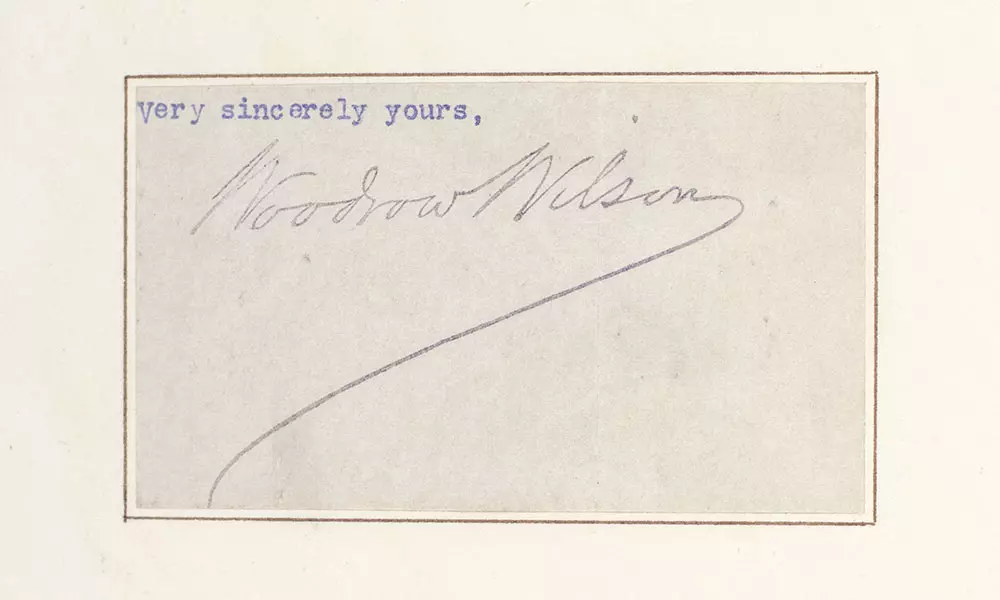 Very sincerely yours,
Woodrow Wilson